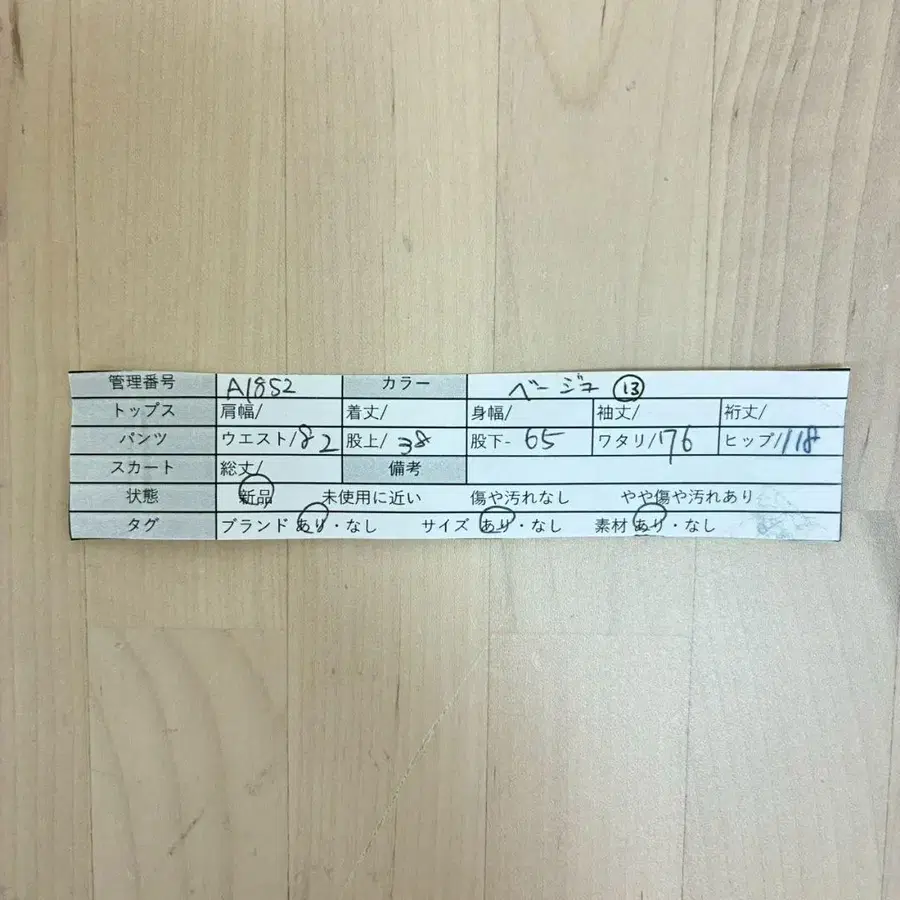 管理番号 A1852 カラー ベージュ ⑬
トップス 肩幅/ 着丈/ 身幅/ 袖丈/ 裄丈/
パンツ ウエスト/82 股上/38 股下-65 ワタリ/76 ヒップ/118
スカート 総丈/ 備考
状態 新品 未使用に近い 傷や汚れなし やや傷や汚れあり
タグ ブランド あり・なし サイズ あり・なし 素材 あり・なし